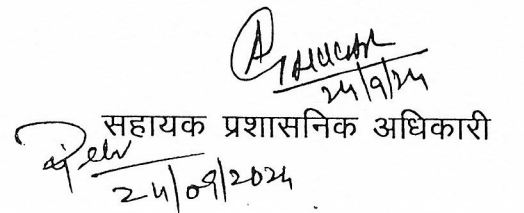 24/9/24
सहायक प्रशासनिक अधिकारी
24/09/2024